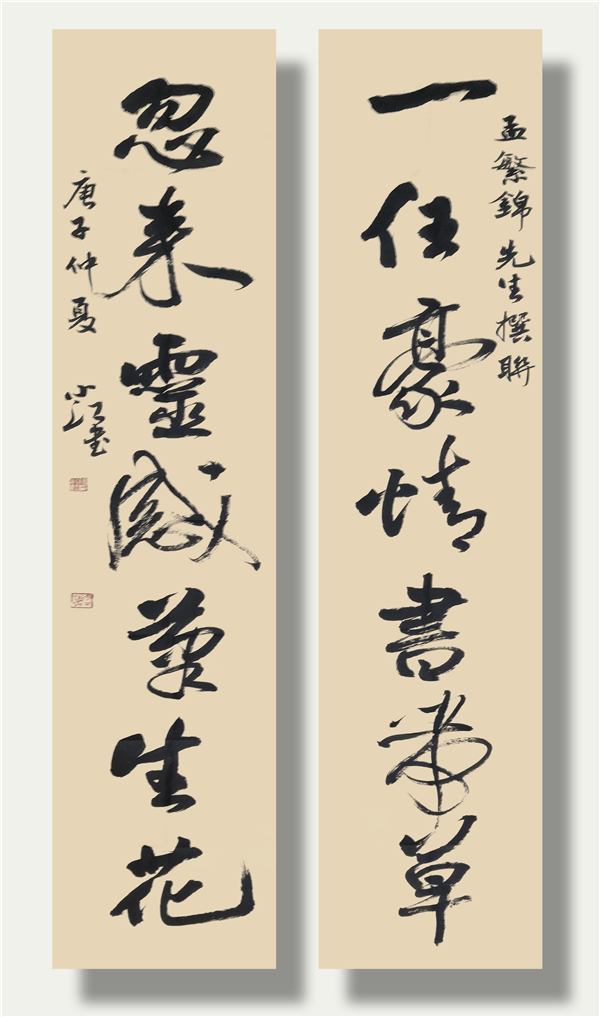 孟繁錦先生撰聯
一任豪情書帶草
忽来靈感筆生花
庚子仲夏
小江書